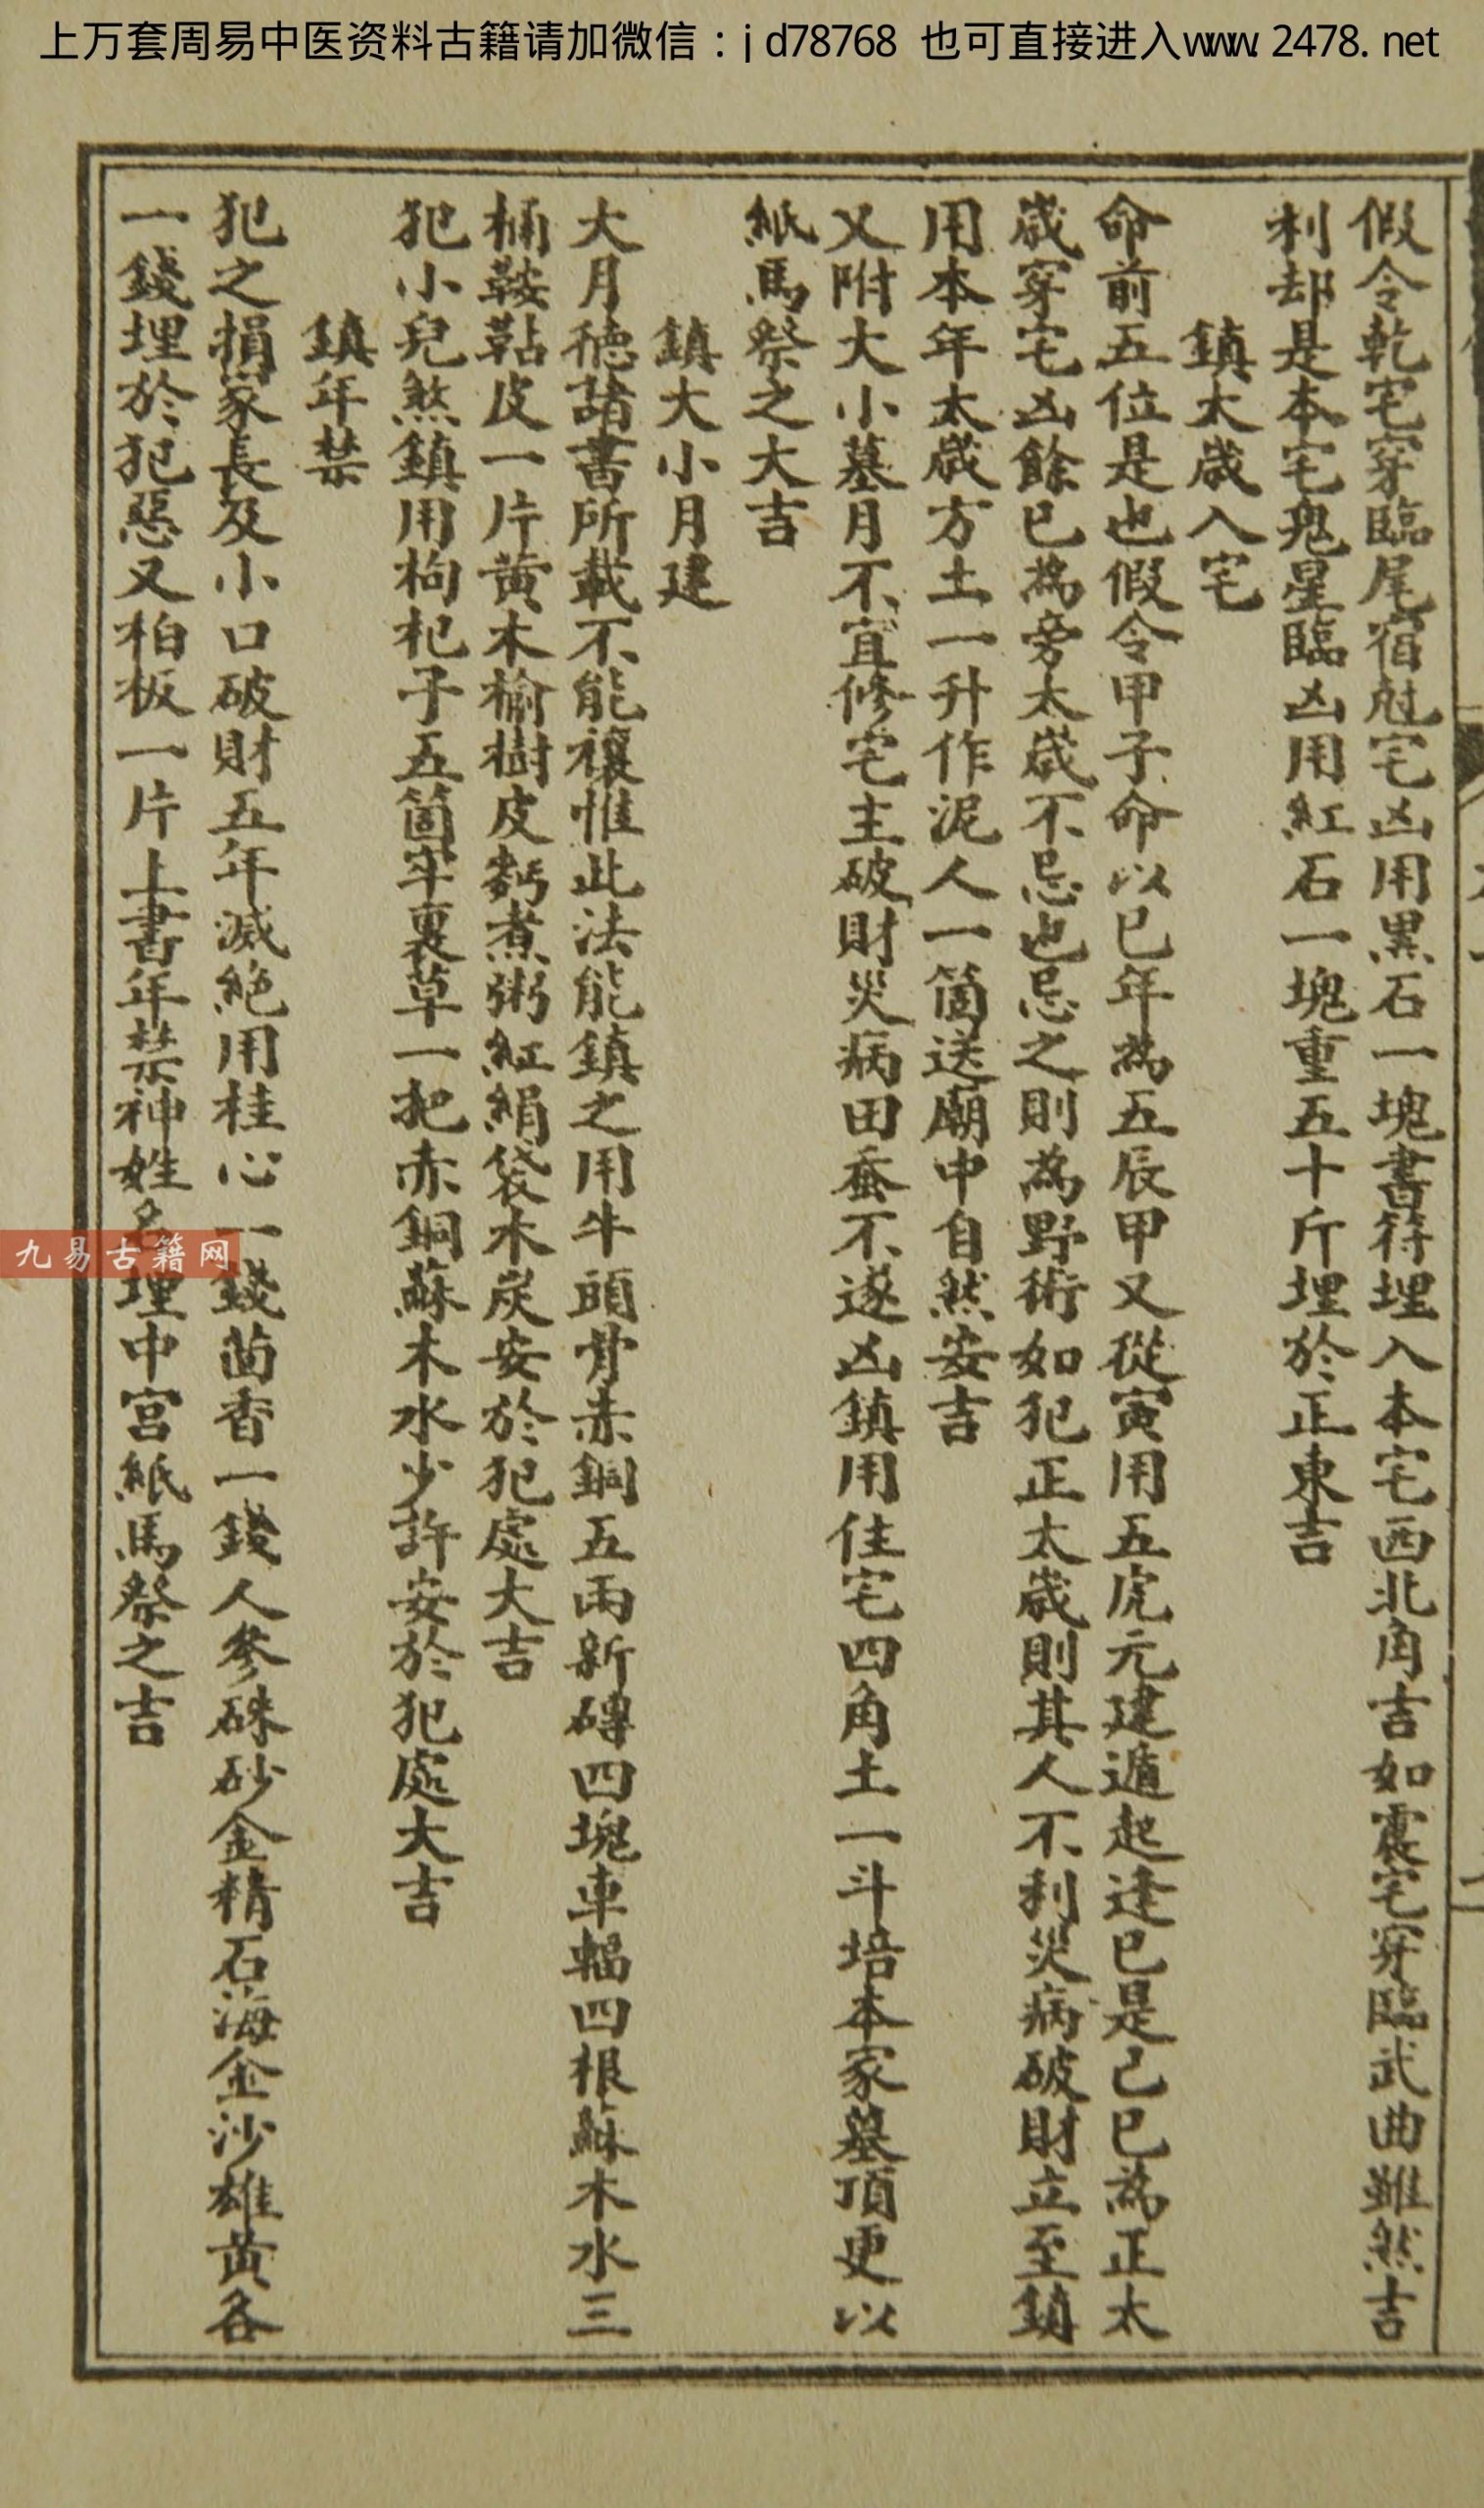 上万套周易中医资料古籍请加微信：jd78768 也可直接进入www.2478.net
假令乾宅穿臨尾宿尅宅凶用黑石一塊書符埋入本宅西北角吉如震宅穿臨武曲雖然吉
利却是本宅鬼星臨凶用紅石一塊重五十斤埋於正東吉
鎮太歲入宅
命前五位是也假令甲子命以巳年為五辰甲又從寅用五虎元建遁起逢巳是己巳為正太
歲穿宅凶餘巳為旁太歲不忌也忌之則為野術如犯正太歲則其人不利災病破財立至鎮
用本年太歲方土一升作泥人一箇送廟中自然安吉
又附大小墓月不宜修宅主破財災病田蚕不遂凶鎮用住宅四角土一斗培本家墓頂更以
紙馬祭之大吉
鎮大小月建
大月德諸書所載不能禳惟此法能鎮之用牛頭骨赤銅五兩新磚四塊車輻四根蘇木水三
桶鞍鞊皮一片黄木榆樹皮麪煮粥紅絹袋木炭安於犯處大吉
犯小兒煞鎮用枸杞子五箇牢裏草一把赤銅蘇木水少許安於犯處大吉
鎮年禁
犯之損家長及小口破財五年滅絶用桂心一錢茴香一錢人參硃砂金精石海金沙雄黄各
一錢埋於犯惡又柏板一片上書年禁神姓名埋中宫紙馬祭之吉
九易古籍网